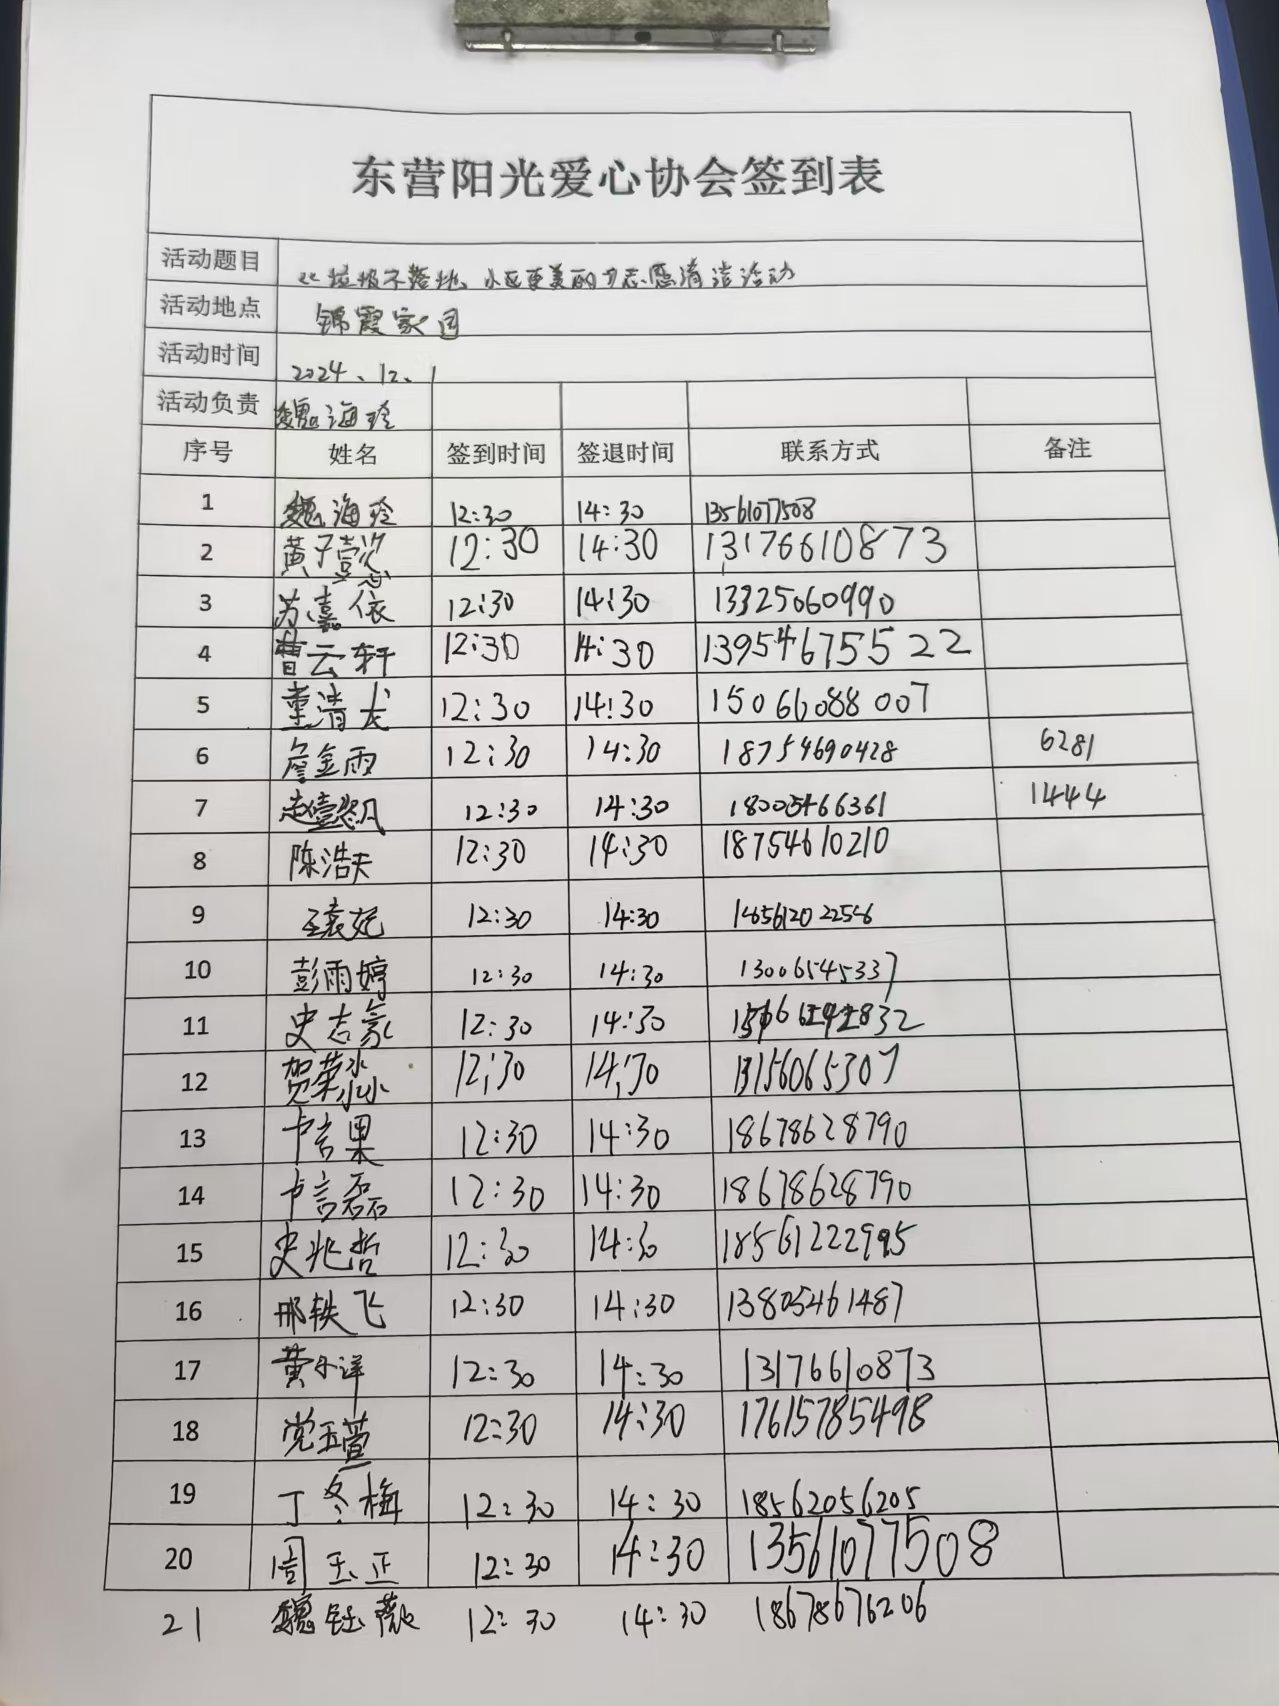 东营阳光爱心协会签到表
活动题目 "垃圾不落地、小区更美丽"志愿清洁活动
活动地点 锦霞家园
活动时间 2024、12、1
活动负责 魏海玲
序号 姓名 签到时间 签退时间 联系方式 备注
1 魏海玲 12:30 14:30 13561077508
2 黄子懿 12:30 14:30 13176610873
3 苏嘉依 12:30 14:30 13325060990
4 曹云轩 12:30 14:30 13954675522
5 董清龙 12:30 14:30 15066088007
6 詹金雨 12:30 14:30 18754690428 6281
7 赵懿凡 12:30 14:30 18005466361 1444
8 陈浩天 12:30 14:30 18754610210
9 12:30 14:30
10 彭雨婷 12:30 14:30 13006545337
11 史志豪 12:30 14:30
12 贺荣淼 12:30 14:30 13156065307
13 卞言果 12:30 14:30 18678628790
14 卞言磊 12:30 14:30 18678628790
15 史兆哲 12:30 14:30 18561222995
16 邢轶飞 12:30 14:30 13805461487
17 黄子洋 12:30 14:30 13176610873
18 党玉萱 12:30 14:30 17615785498
19 丁冬梅 12:30 14:30 18562056205
20 周玉正 12:30 14:30 13561077508
21 魏钰薇 12:30 14:30 18678676206